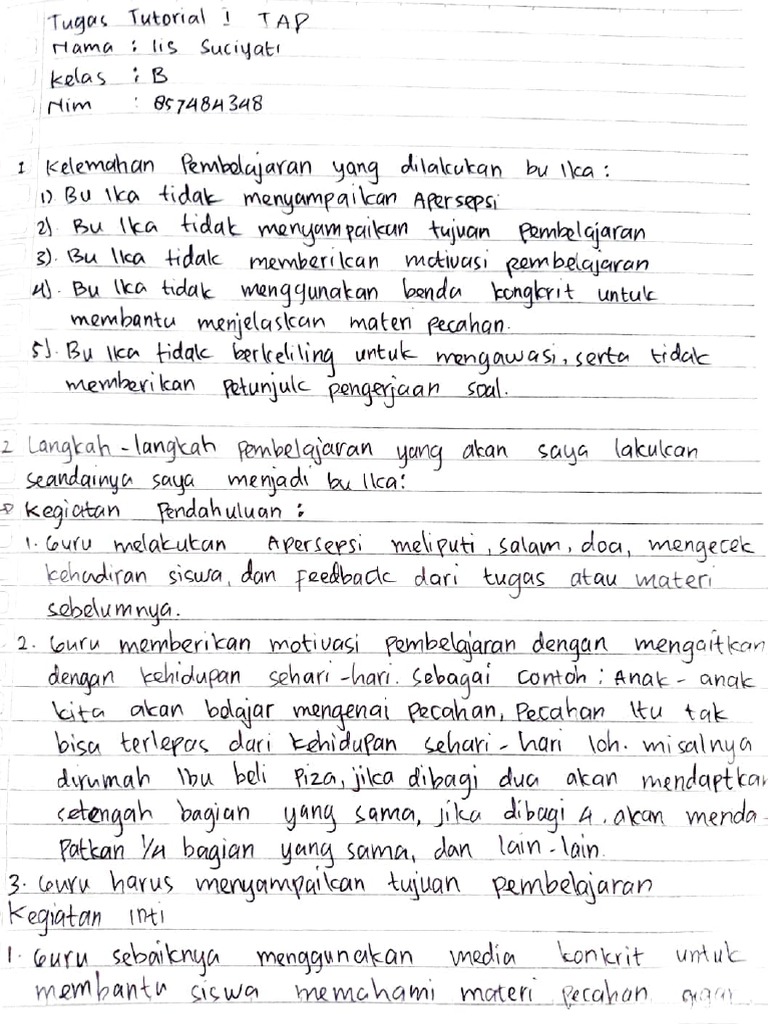 Tugas Tutorial 1 TAP
Nama : Iis Suciyati
Kelas : B
Nim : 857484348
1 Kelemahan Pembelajaran yang dilakukan bu Ika :
1) Bu Ika tidak menyampaikan Apersepsi
2). Bu Ika tidak menyampaikan tujuan Pembelajaran
3). Bu Ika tidak memberikan motivasi pembelajaran
4). Bu Ika tidak menggunakan benda kongkrit untuk
membantu menjelaskan materi pecahan.
5). Bu Ika tidak berkeliling untuk mengawasi, serta tidak
memberikan petunjuk pengerjaan soal.
2 Langkah-langkah pembelajaran yang akan saya lakukan
seandainya saya menjadi bu Ika:
Kegiatan Pendahuluan :
1. Guru melakukan Apersepsi meliputi, salam, doa, mengecek
kehadiran siswa, dan feedback dari tugas atau materi
sebelumnya.
2. Guru memberikan motivasi pembelajaran dengan mengaitkan
dengan kehidupan sehari-hari. Sebagai contoh : Anak-anak
kita akan belajar mengenai pecahan, Pecahan itu tak
bisa terlepas dari kehidupan sehari-hari loh. misalnya
dirumah Ibu beli Piza, jika dibagi dua akan mendaptkan
setengah bagian yang sama, jika dibagi 4. akan menda-
patkan 1/4 bagian yang sama, dan lain-lain.
3. Guru harus menyampaikan tujuan pembelajaran
Kegiatan inti
1. Guru sebaiknya menggunakan media konkrit untuk
membantu siswa memahami materi pecahan agar